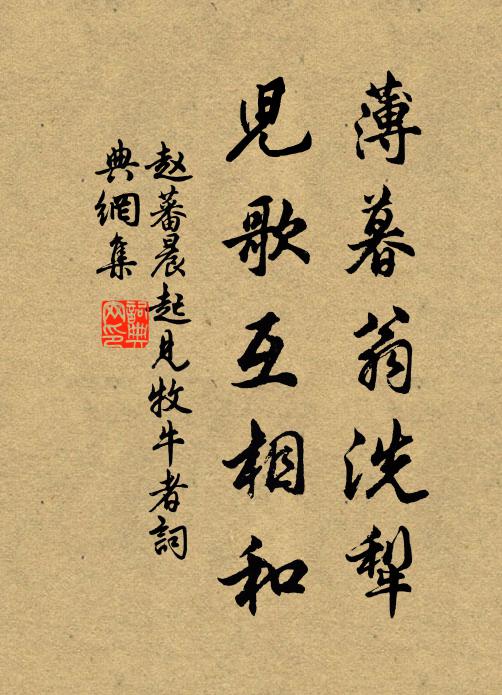 薄暮翁洗犁
兒歌互相和
赵蕃晨起見牧牛者詞
典網集
詞典網印